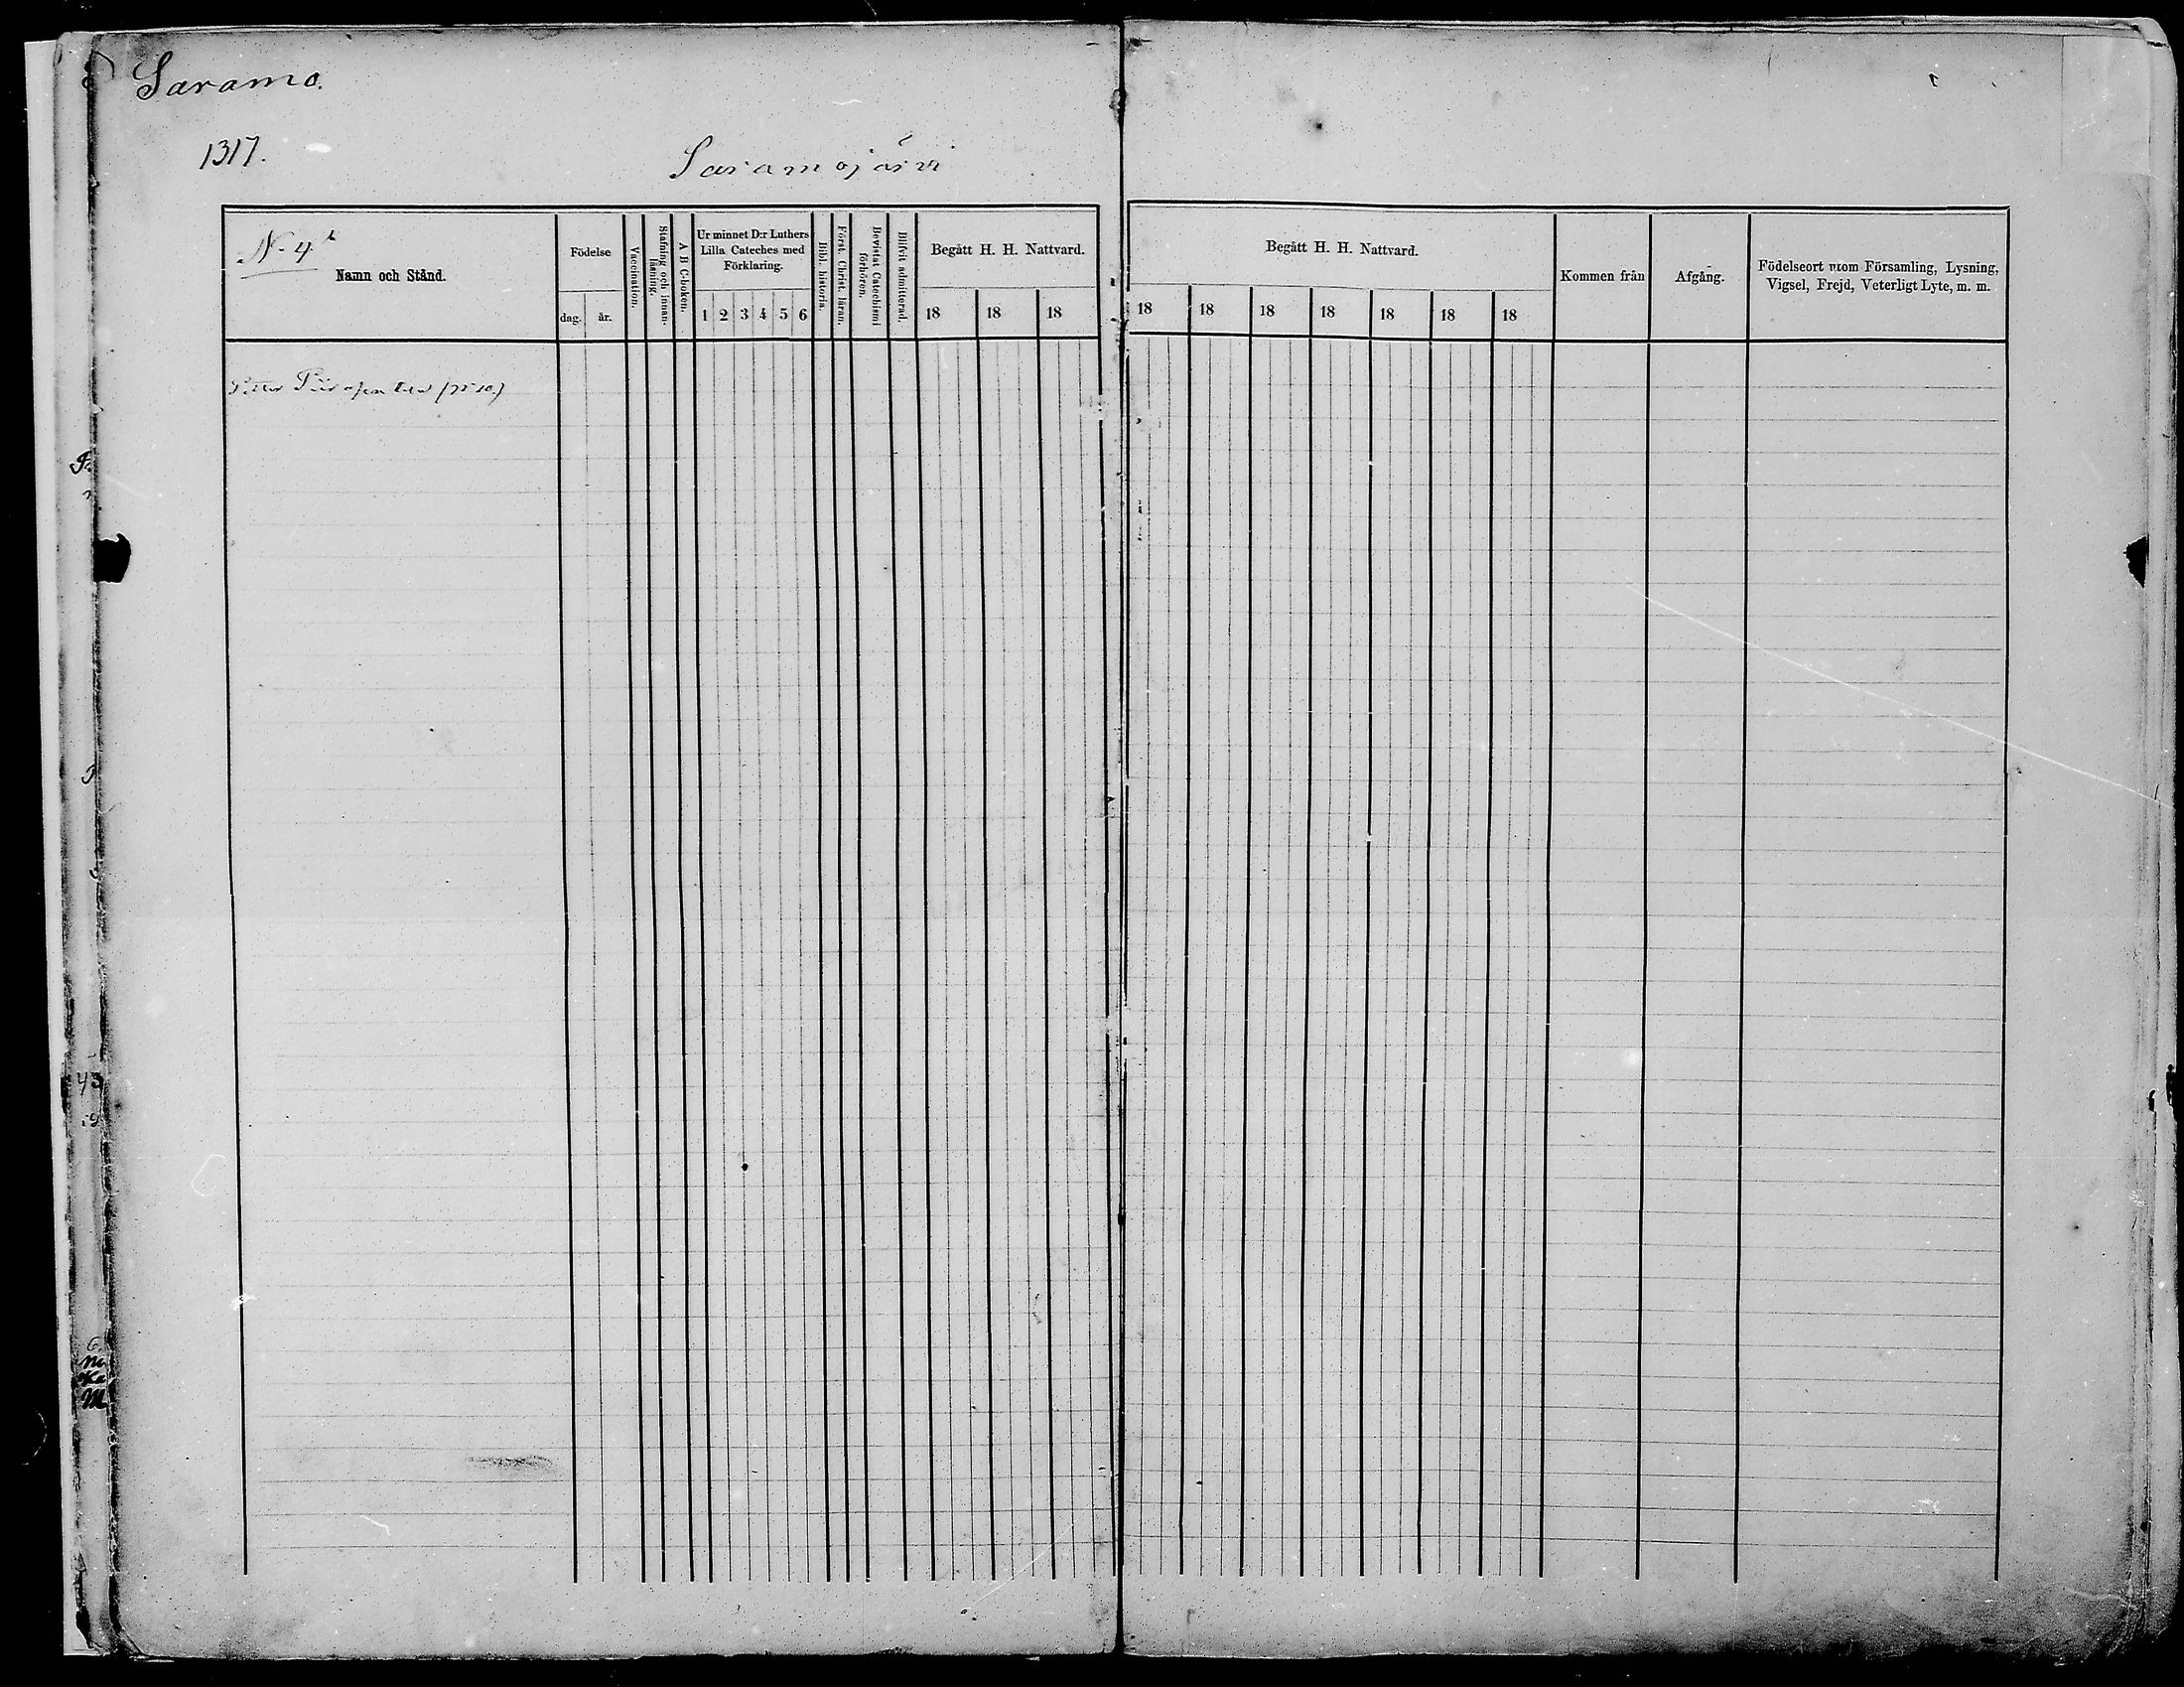 Saramo.
1317.
Saramojärvi
N. 4
Namn och Stånd.
Födelse
dag.
år.
Vaccination.
Stafning och innan-
läsning.
A B C-boken.
Ur minnet D:r Luthers
Lilla Cateches med
Förklaring.
1 2 3 4 5 6
Bibl. historia.
Först. Christ. läran.
Bevistat Catechismi
förhören.
Blifvit admitterad.
Begått H. H. Nattvard.
18 18 18
Begått H. H. Nattvard.
18 18 18 18 18 18 18
Kommen från
Afgång.
Födelseort utom Församling, Lysning,
Vigsel, Frejd, Veterligt Lyte, m. m.
Petter